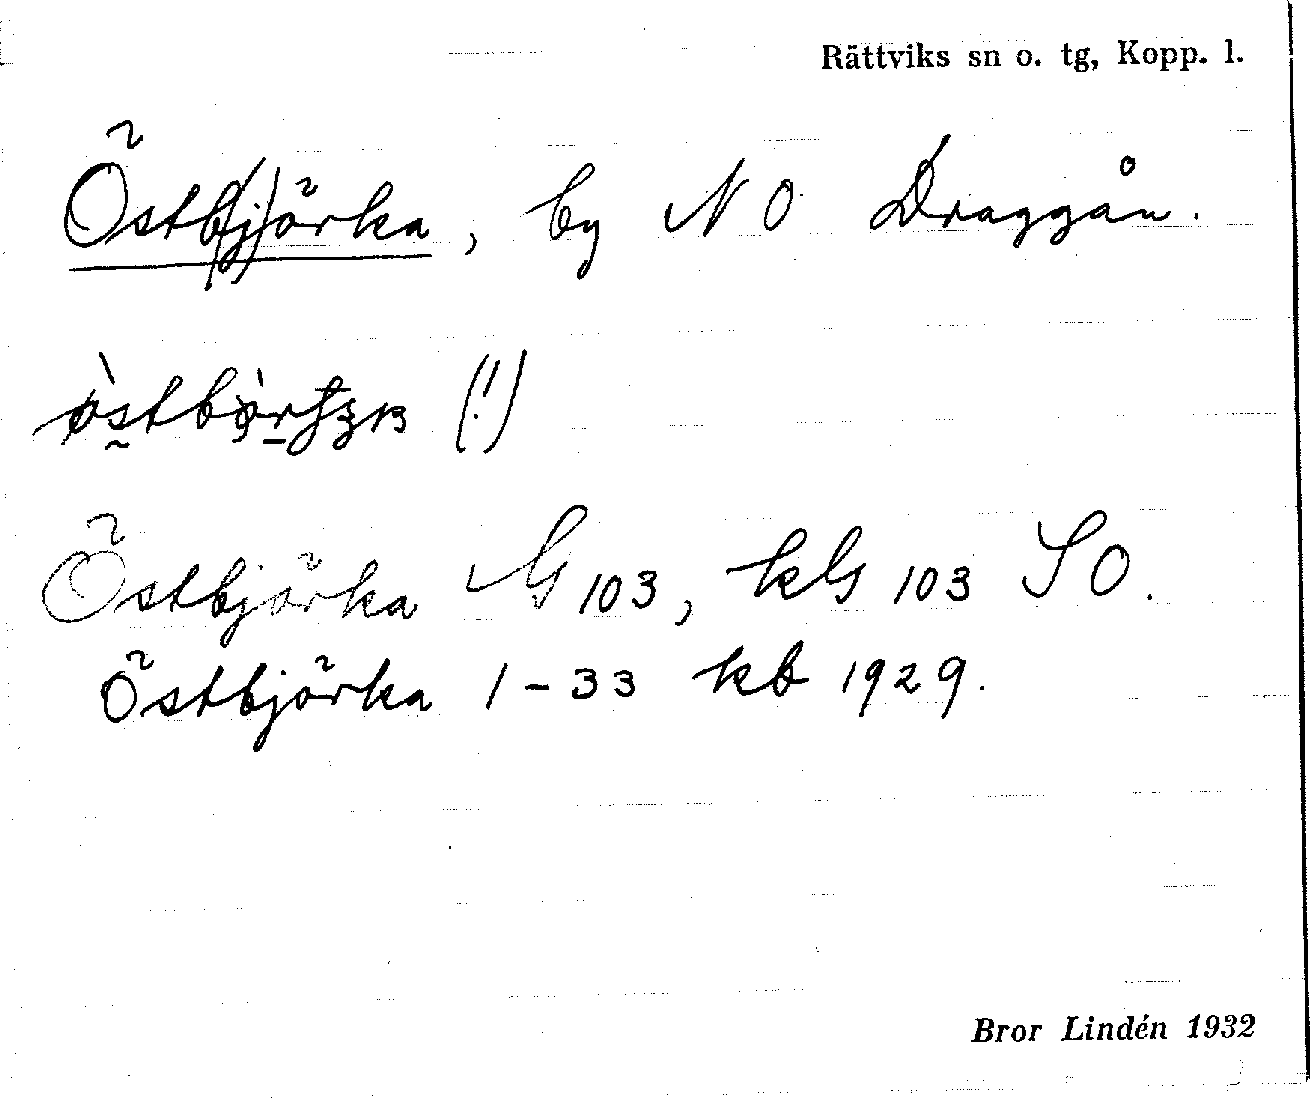 Rättviks sn o. tg, Kopp. l.
Östb(j)örka, by NO Draggån.
(!)
Östbjörka G 103, kls 103 SO.
Östbjörka 1-33 kb 1929.
Bror Lindén 1932